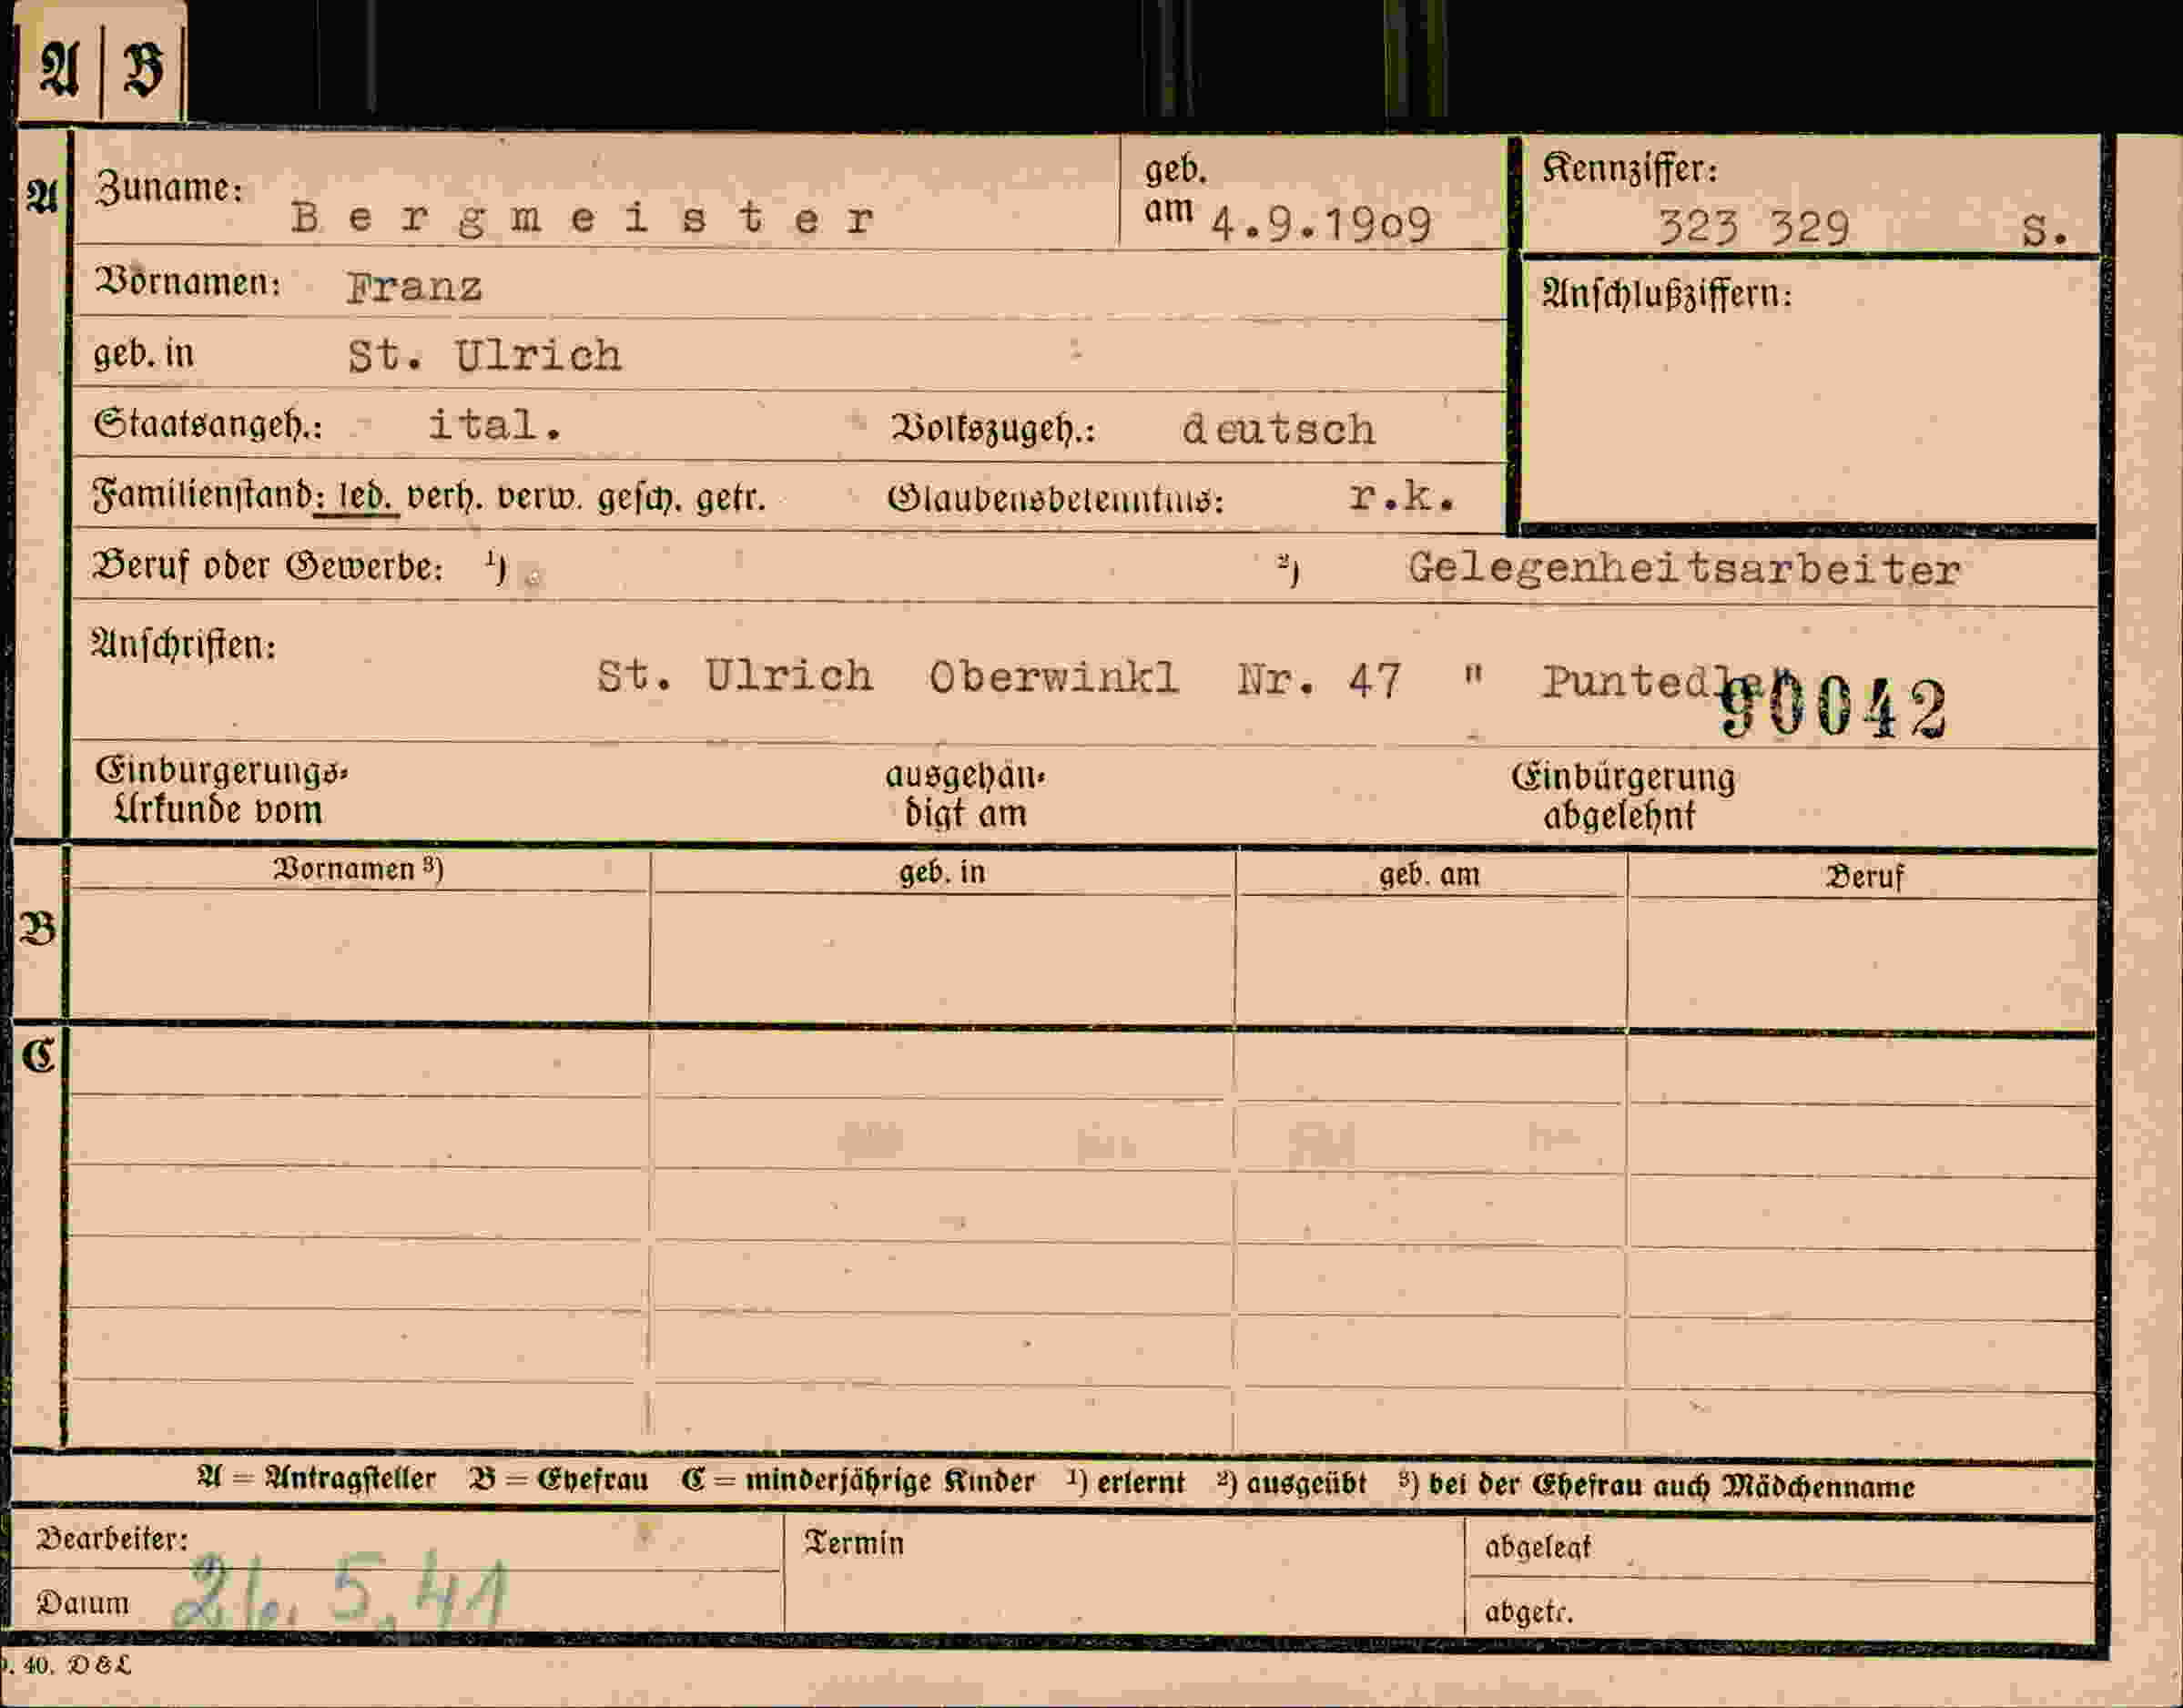 A B
A Zuname: Bergmeister geb. am 4.9.1909 Kennziffer: 323 329 S.
Vornamen: Franz Anschlußziffern:
geb. in St. Ulrich
Staatsangeh.: ital. Volkszugeh.: deutsch
Familienstand: led. verh. verw. gesch. getr. Glaubensbekenntnis: r.k.
Beruf oder Gewerbe: ¹) ²) Gelegenheitsarbeiter
Anschriften:
St. Ulrich Oberwinkl Nr. 47 " Puntedler
90042
Einbürgerungs- ausgehän- Einbürgerung
Urkunde vom digt am abgelehnt
Vornamen ³) geb. in geb. am Beruf
B
C
A = Antragsteller B = Ehefrau C = minderjährige Kinder ¹) erlernt ²) ausgeübt ³) bei der Ehefrau auch Mädchenname
Bearbeiter: Termin abgelegt
Datum 26.5.41 abgetr.
40. DGL